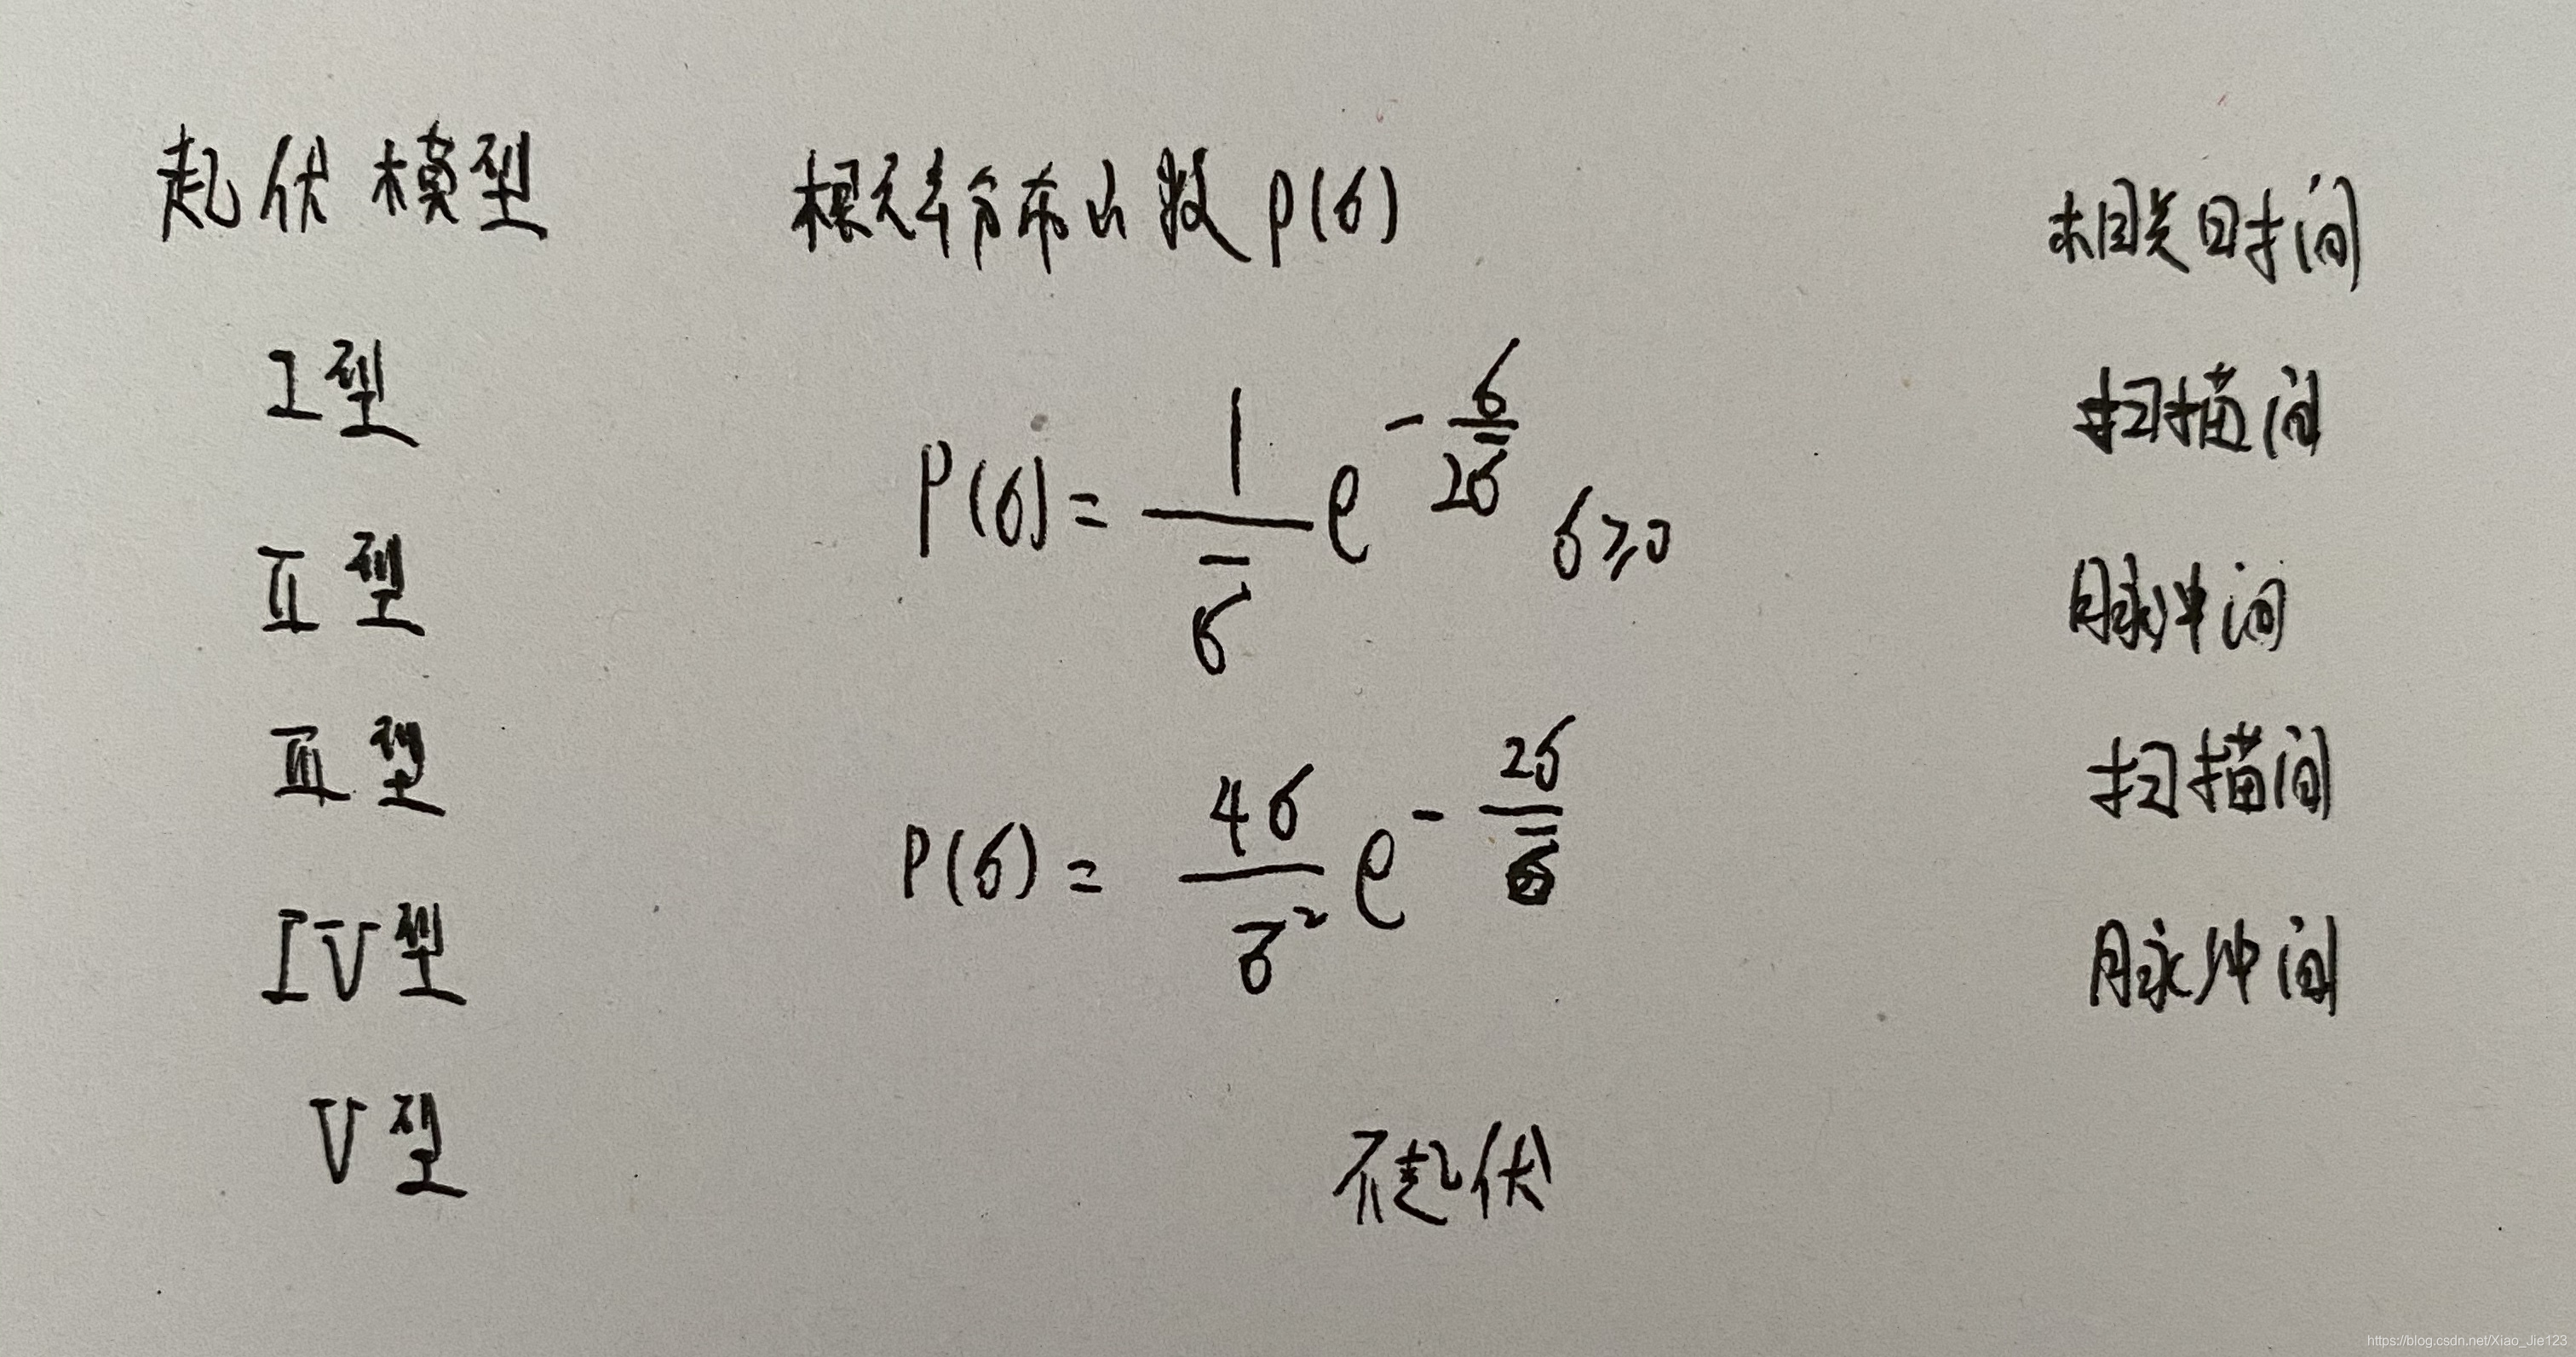 起伏模型 概率分布函数 P(σ) 相关时间
I型 扫描间
P(σ) = 1/σ̄ e^(-σ/2σ̄) σ≥0
II型 脉冲间
III型 扫描间
P(σ) = 4σ/σ̄² e^(-2σ/σ̄)
IV型 脉冲间
V型 不起伏
https://blog.csdn.net/Xiao_Jie123